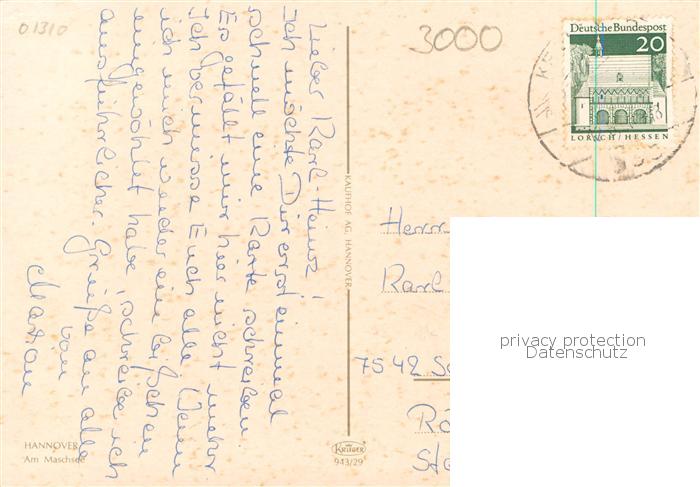 01310
3000
Deutsche Bundespost
20
LORSCH / HESSEN
Lieber Karl-Heinz!
Ich möchte Dir erst einmal
schnell eine Karte schreiben
Es gefällt mir hier nicht mehr
Ich vermisse Euch alle. Wenn
ich mich wieder ein bißchen
eingewöhlt habe, schreibe ich
ausführlicher. Grüße an alle
von
Marion
KAUFHOF AG, HANNOVER
Herrn
Karl
7542 Sc
Rö
Sta
privacy protection
Datenschutz
HANNOVER
Am Maschsee
KRÜGER
943/29